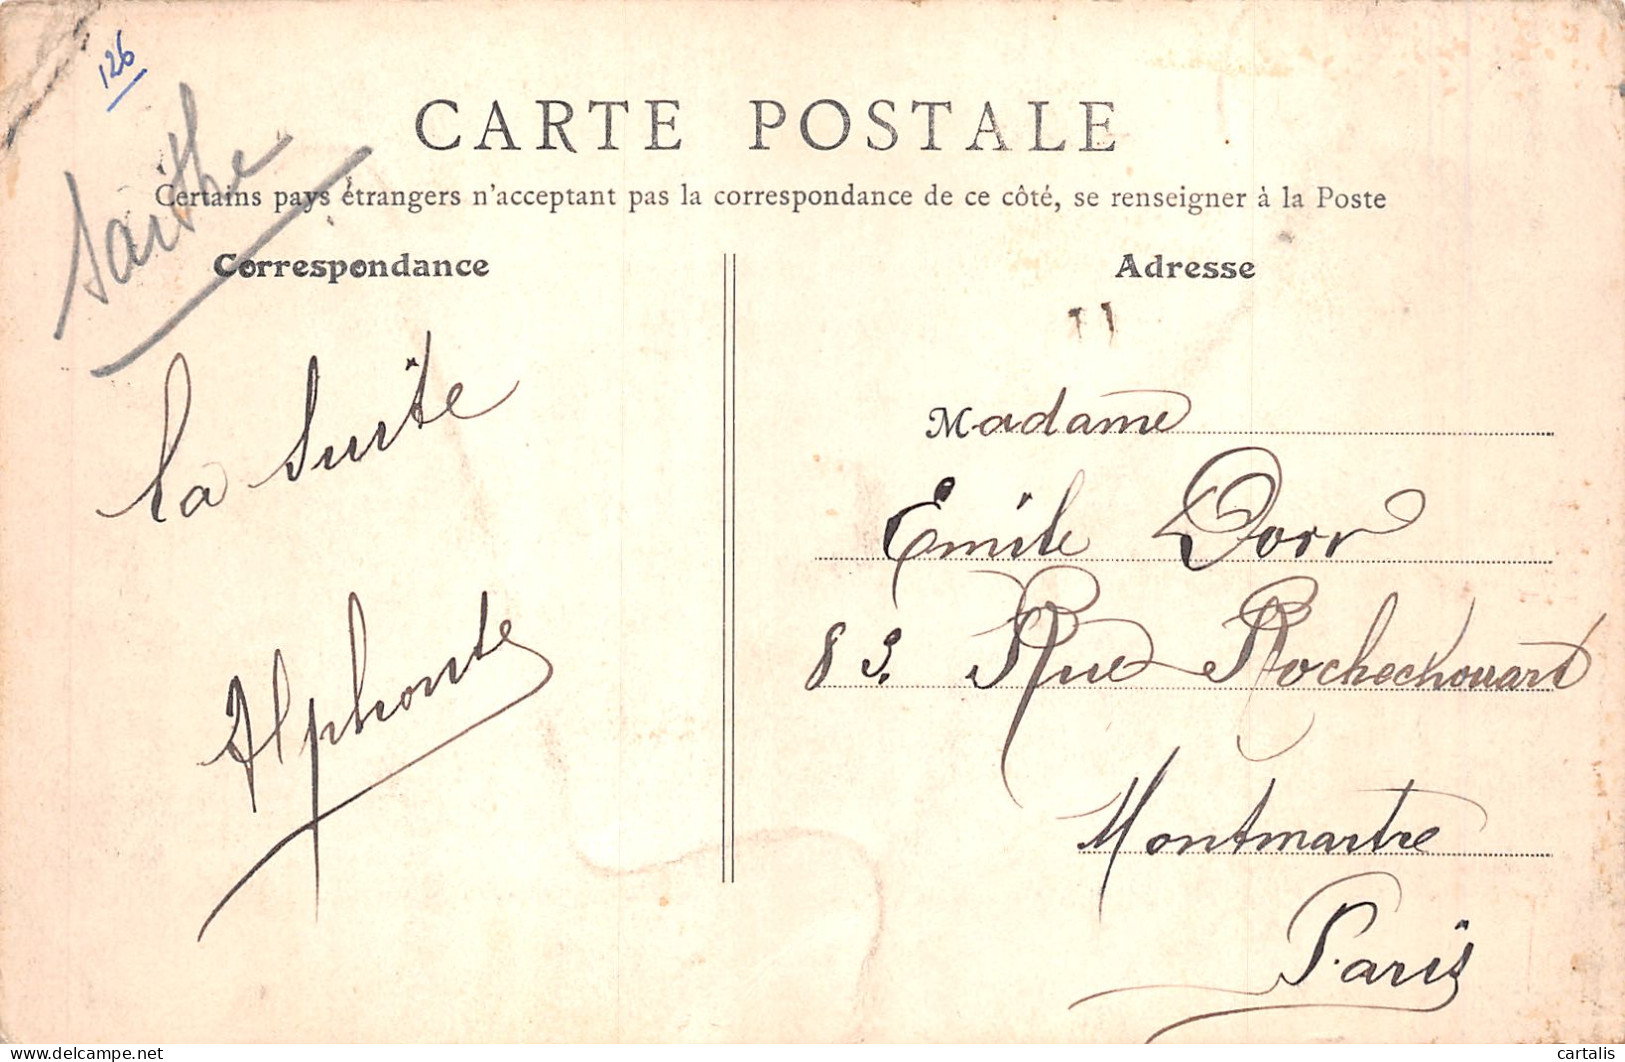 126
Sarthe
CARTE POSTALE
Certains pays étrangers n'acceptant pas la correspondance de ce côté, se renseigner à la Poste
Correspondance
la suite
Alphonse
Adresse
Madame
Emile Dorr
83. Rue Rochechouart
Montmartre
Paris
www.delcampe.net
philou37
cartalis